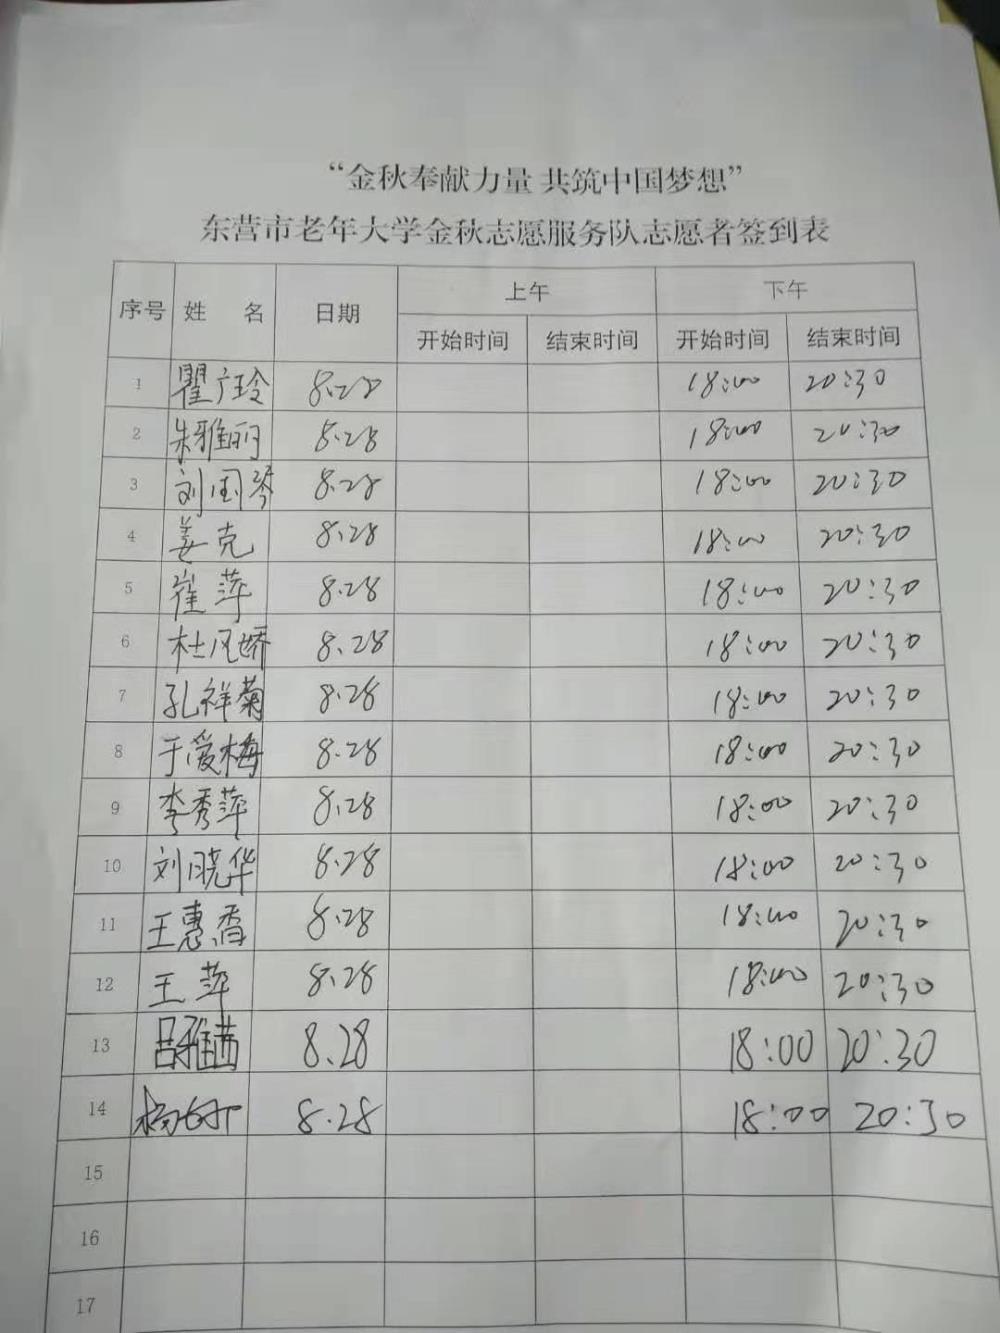 “金秋奉献力量 共筑中国梦想”
东营市老年大学金秋志愿服务队志愿者签到表
序号 姓 名 日期 上午 下午
开始时间 结束时间 开始时间 结束时间
1 瞿广玲 8.28 18:00 20:30
2 朱雅丽 8.28 18:00 20:30
3 刘国琴 8.28 18:00 20:30
4 姜克 8.28 18:00 20:30
5 崔萍 8.28 18:00 20:30
6 杜凤娇 8.28 18:00 20:30
7 孔祥菊 8.28 18:00 20:30
8 于爱梅 8.28 18:00 20:30
9 李秀萍 8.28 18:00 20:30
10 刘晓华 8.28 18:00 20:30
11 王惠香 8.28 18:00 20:30
12 王萍 8.28 18:00 20:30
13 吕雅茜 8.28 18:00 20:30
14 8.28 18:00 20:30
15
16
17